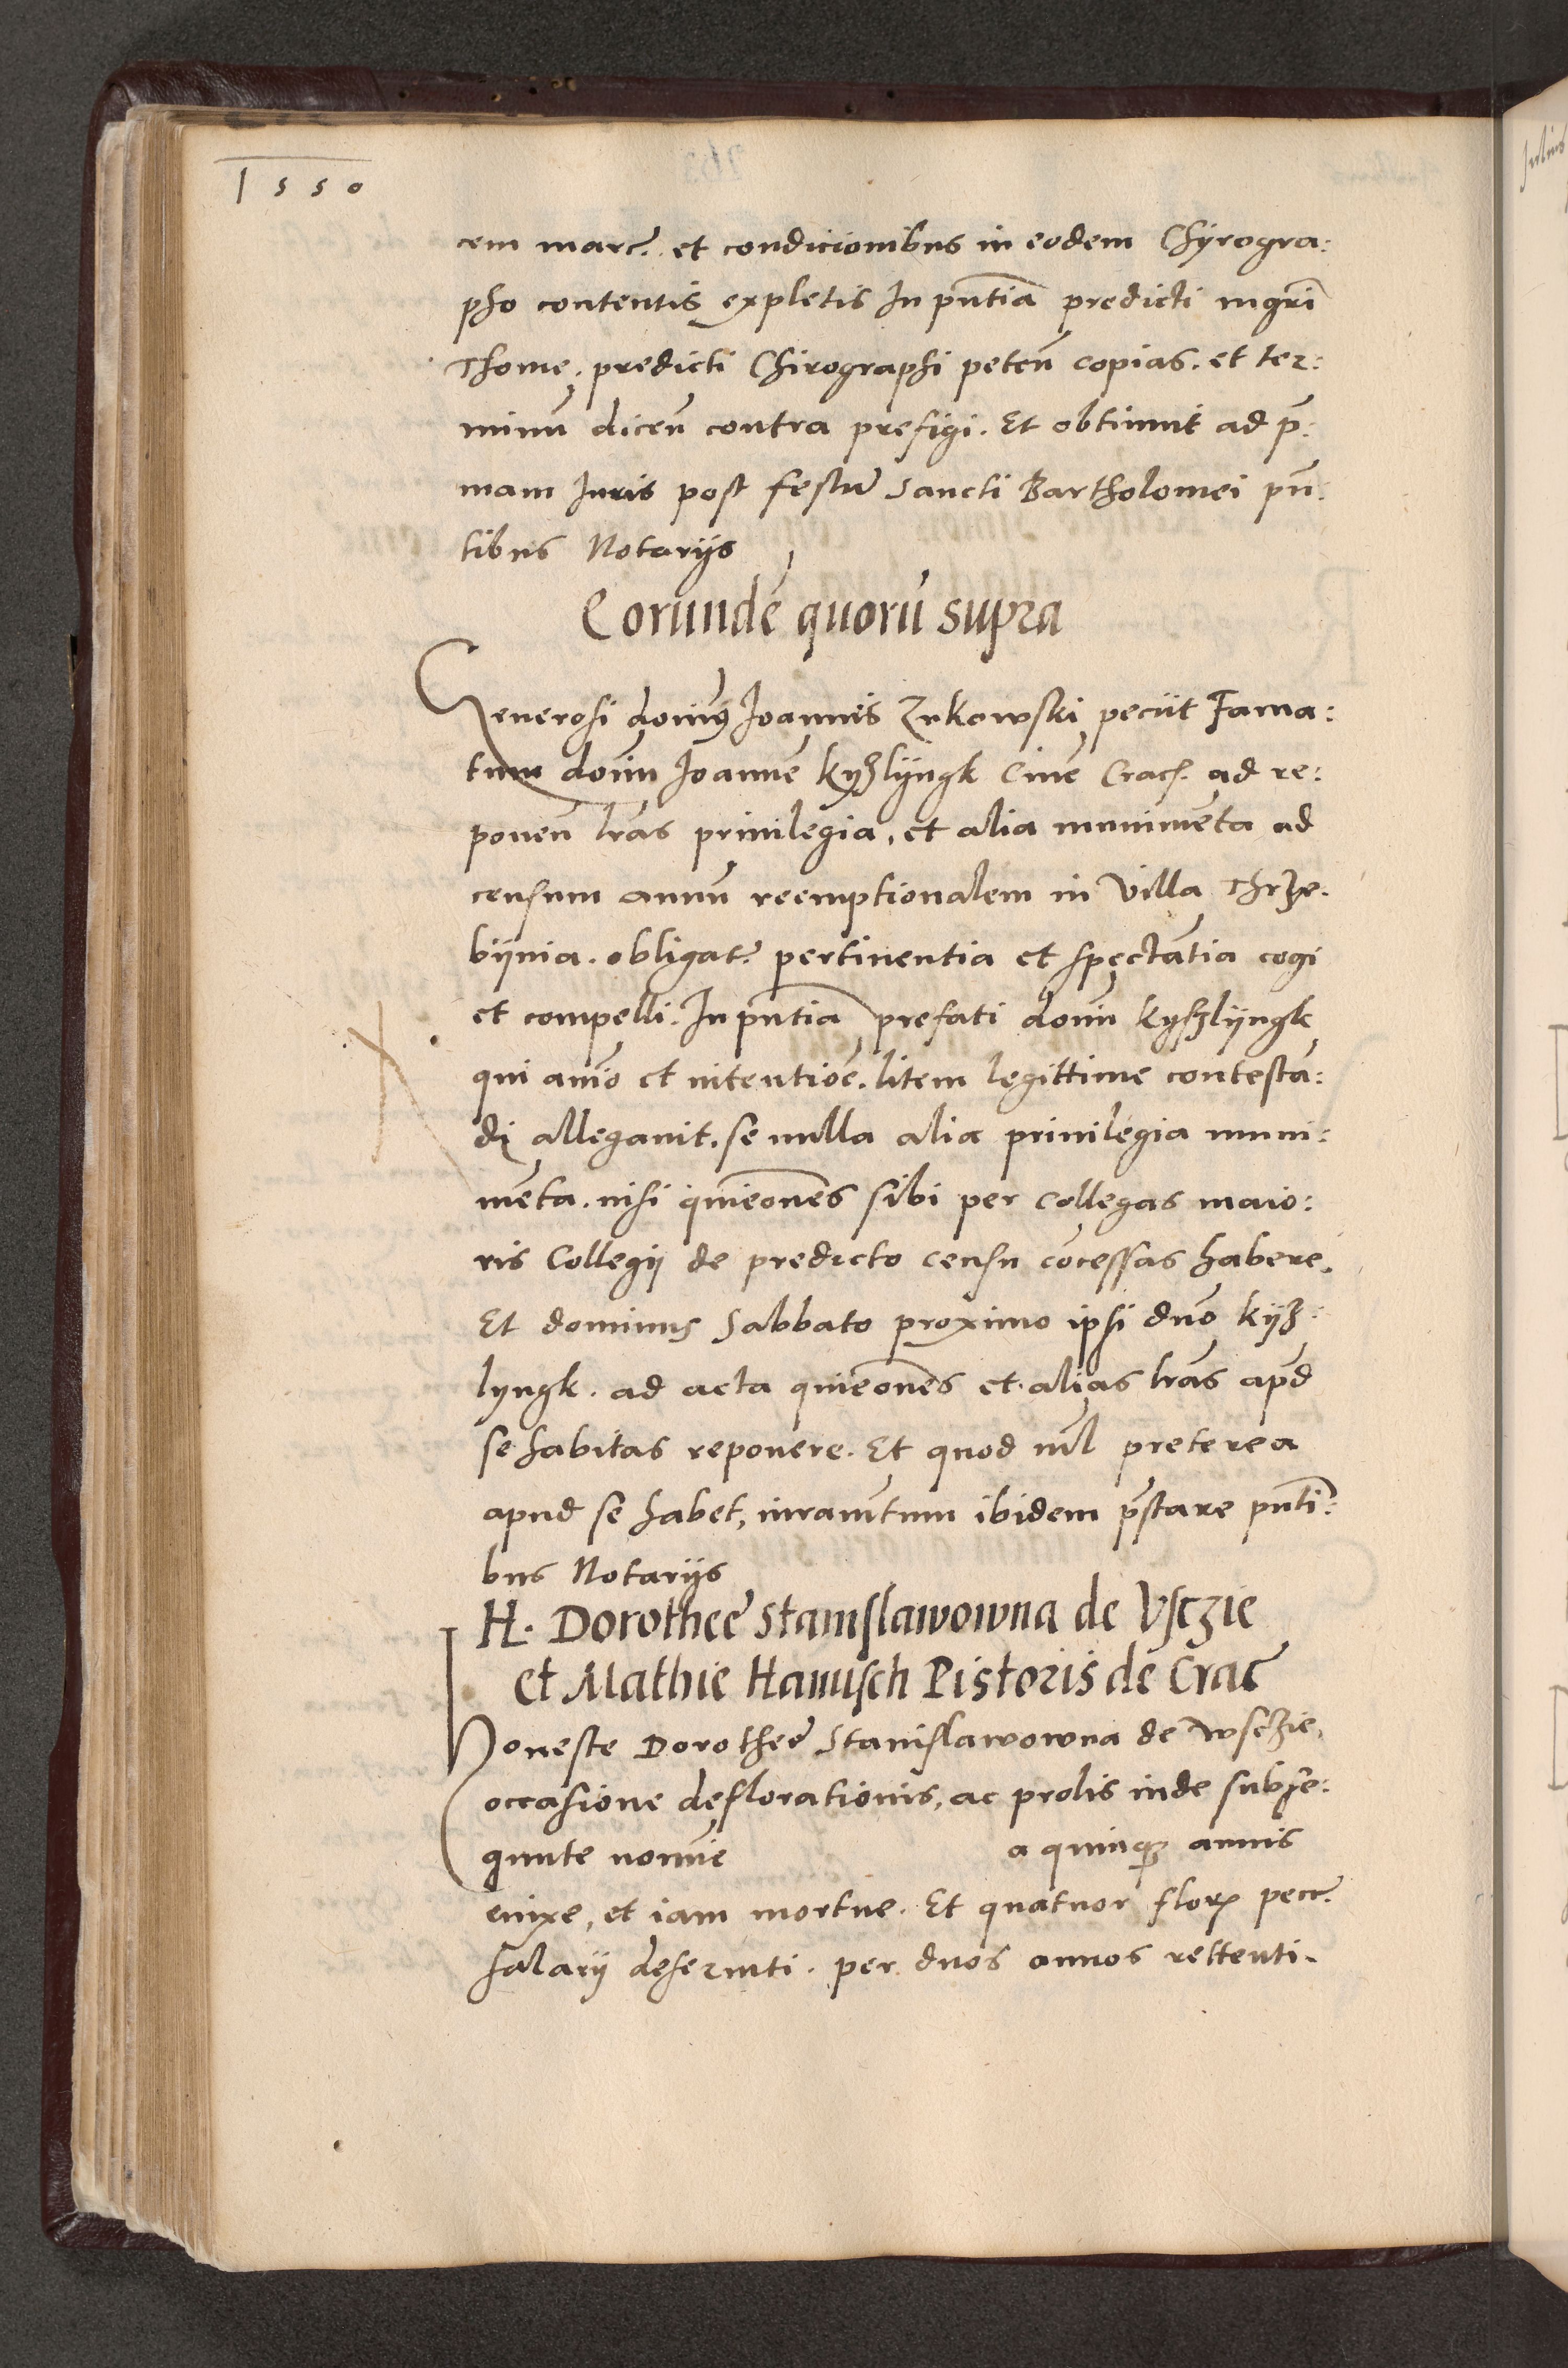 1550
cem marc̃. et condicionibus in eodem Chyrogra:
pho contentis expletis In pñtia predicti mgri
Thome. predicti Chirographi peteñ copias. et ter:
minũ diceñ contra prefigi. Et obtinuit ad p̃:
mam Iuris post festũ Sancti Bartholomei pñ:
tibus Notarijs
Eorundẽ quorũ supra
Generosi domini Joannis Zukowski peciit Fama:
tum domĩ Joannẽ Kyßlyngk Ciuẽ Crac̃. ad re:
poneñ lr̃as priuilegia, et alia munimẽta ad
censum annuũ reemptionalem in Villa Thrze.
bijnia. obligat̃. pertinentia et spectãtia cogi
et compelli. In pñtia prefati domĩ Kyszlyngk
qui animo et intentiõe. litem legittime contestã:
di allegauit. se nulla alia priuilegia muni:
mẽta. nisi quieõnes sibi per Collegas maio:
ris Collegij de predicto censu cõcessas habere.
Et dominus Sabbato proximo ipsi dño Kyß:
lyngk. ad acta quieõnes et alias lr̃as apd
se habitas reponere. Et quod nil preterea
apud se habet, iuramtum ibidem p̃stare pñti:
bus Notarijs
H. Dorothee Stanislawowna de Vsczie
et Mathie Hanusch Pistoris de Crac̃
Honeste Dorothee Stanislawowna de Wsczie,
occasione deflorationis, ac prolis inde subse:
qunte nomĩe a quinq annis
enixe, et iam mortue. Et quatuor flor̃ pecc̃.
salarij deseruiti. per duos annos rettenti.